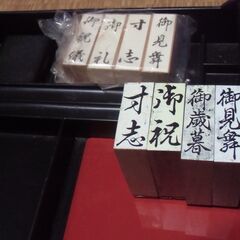 御見舞
寸志
御礼
御祝儀
御見舞
御歳暮
御祝
寸志